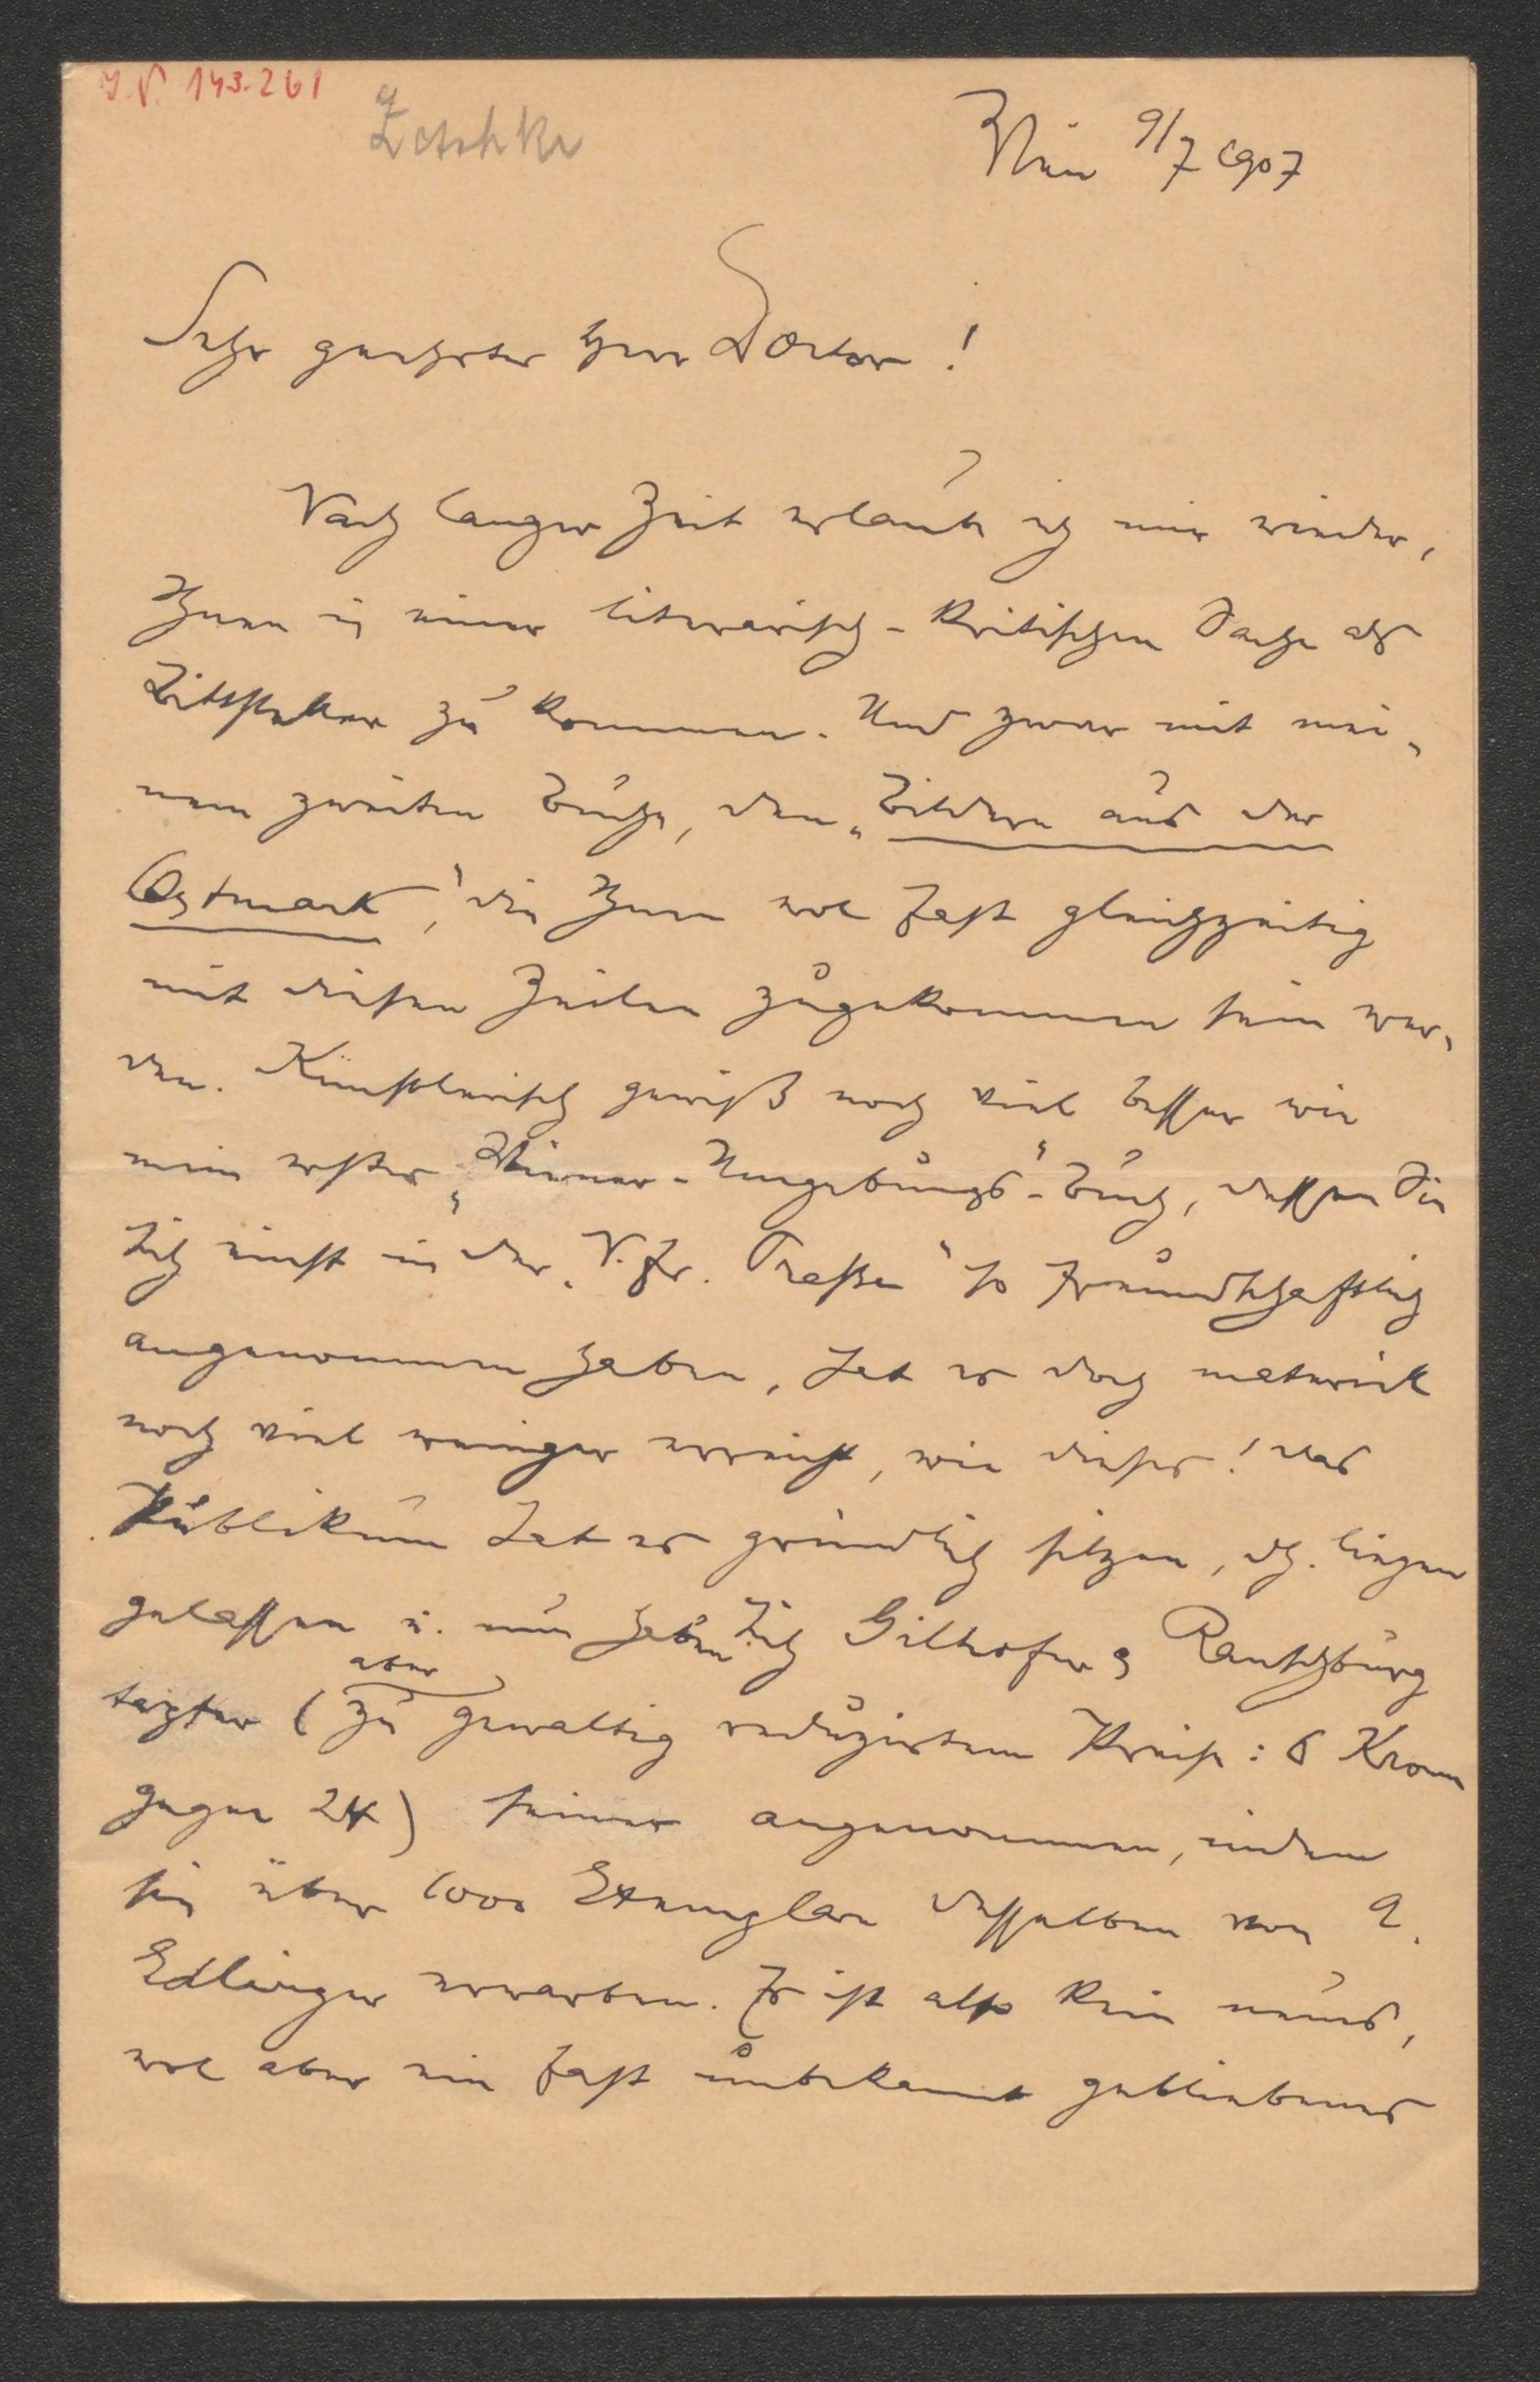 I.N. 143.261
Zetsche
Wien 9/7 1907
Sehr geehrter Herr Doctor!
Nach langer Zeit erlaube ich mir wieder,
Ihnen in einer literarisch-kritischen Sache als
Bittsteller zu kommen. Und zwar mit mei-
nem zweiten Buche, den „Bildern aus der
Ostmark“, die Ihnen wol fast gleichzeitig
mit diesen Zeilen zugekommen sein wer-
den. Künstlerisch gewiß noch viel besser wie
mein erstes „Wiener-Umgebungs“-Buch, dessen Sie
Sich einst in der „N. fr. Presse“ so freundschaftlich
angenommen haben, hat es doch materiell
noch viel weniger erreicht, wie dieses! Das
Publikum hat es gründlich sitzen, dh. liegen
gelassen u. nun haben Sich Gilhofer & Ranschburg
(aber zu gewaltig reduzirtem Preise: 6 Kronen
gegen 24) seiner angenommen, indem
sie über 1000 Exemplare desselben von A.
Edlinger erwarben. Es ist also kein neues,
wol aber ein fast unbekannt gebliebenes